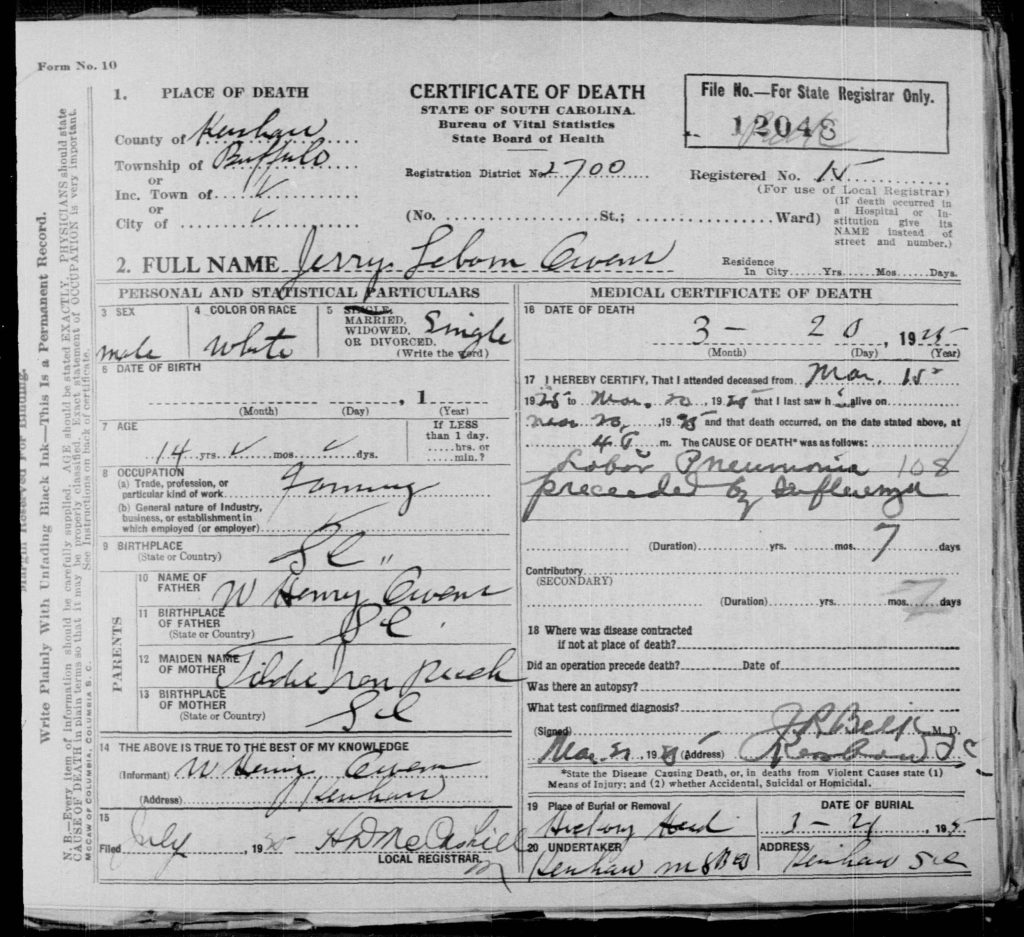 Form No. 10
1. PLACE OF DEATH
County of Kershaw
Township of Buffalo
or
Inc. Town of ✓
or
City of ✓
CERTIFICATE OF DEATH
STATE OF SOUTH CAROLINA.
Bureau of Vital Statistics
State Board of Health
Registration District No. 2700
(No. St.; Ward)
File No.—For State Registrar Only.
12048
Registered No. 15
(For use of Local Registrar)
(If death occurred in
a Hospital or In-
stitution give its
NAME instead of
street and number.)
2. FULL NAME Jerry Owens
Residence
In City Yrs. Mos. Days.
PERSONAL AND STATISTICAL PARTICULARS
3 SEX
male
4 COLOR OR RACE
White
5 SINGLE,
MARRIED,
WIDOWED,
OR DIVORCED.
(Write the word)
Single
6 DATE OF BIRTH
, 1
(Month) (Day) (Year)
7 AGE
14 yrs. ✓ mos. ✓ dys.
If LESS
than 1 day.
hrs. or
min.?
8 OCCUPATION
(a) Trade, profession, or
particular kind of work Farming
(b) General nature of Industry,
business, or establishment in
which employed (or employer)
9 BIRTHPLACE
(State or Country) SC
PARENTS
10 NAME OF
FATHER W Henry Owens
11 BIRTHPLACE
OF FATHER
(State or Country) SC
12 MAIDEN NAME
OF MOTHER
13 BIRTHPLACE
OF MOTHER
(State or Country) SC
14 THE ABOVE IS TRUE TO THE BEST OF MY KNOWLEDGE
(Informant) W Henry Owens
(Address) Kershaw
15
Filed July, 19 H D McCaskill
LOCAL REGISTRAR.
MEDICAL CERTIFICATE OF DEATH
16 DATE OF DEATH
3 – 20, 1925
(Month) (Day) (Year)
17 I HEREBY CERTIFY, That I attended deceased from Mar. 15
1925 to Mar. 20, 1925 that I last saw h alive on
Mar 20, 1925 and that death occurred, on the date stated above, at
m. The CAUSE OF DEATH* was as follows:
Lobar Pneumonia 108
preceeded by Influenza
(Duration) yrs. mos. 7 days
Contributory
(SECONDARY)
(Duration) yrs. mos. days
18 Where was disease contracted
if not at place of death?
Did an operation precede death? Date of
Was there an autopsy?
What test confirmed diagnosis?
(Signed) Belk M. D.
Mar. 1925 (Address) Kershaw S C
*State the Disease Causing Death, or, in deaths from Violent Causes state (1)
Means of Injury; and (2) whether Accidental, Suicidal or Homicidal.
19 Place of Burial or Removal
Hickory Head
DATE OF BURIAL
3 – 21 1925
20 UNDERTAKER
Kershaw
ADDRESS
Kershaw SC
Margin Reserved For Binding.
Write Plainly With Unfading Black Ink—This Is a Permanent Record.
N. B.—Every item of information should be carefully supplied. AGE should be stated EXACTLY. PHYSICIANS should state
CAUSE OF DEATH in plain terms so that it may be properly classified. Exact statement of OCCUPATION is very important.
See Instructions on back of certificate.
McCAW OF COLUMBIA, COLUMBIA S. C.